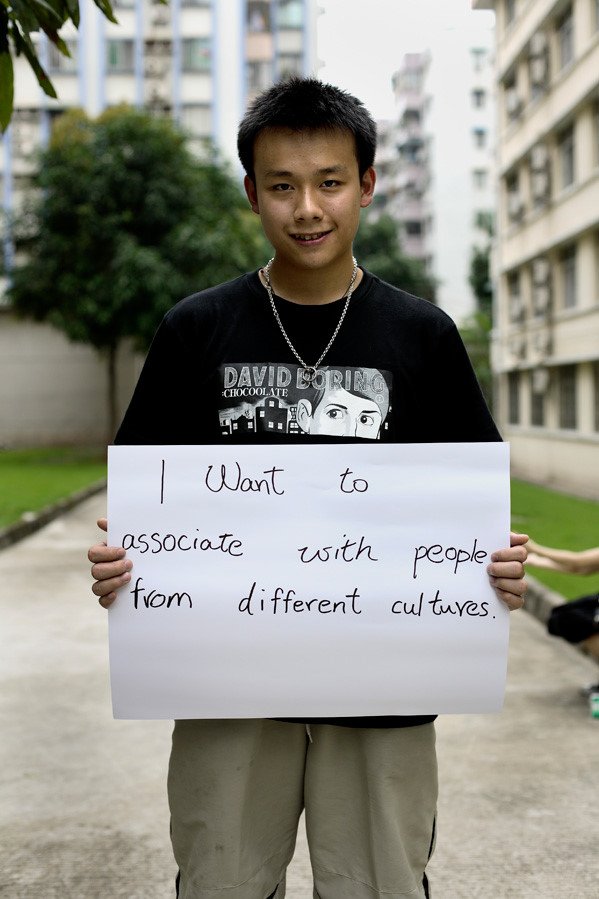 DAVID BORING
:CHOCOOLATE
I Want to
associate with people
from different cultures.